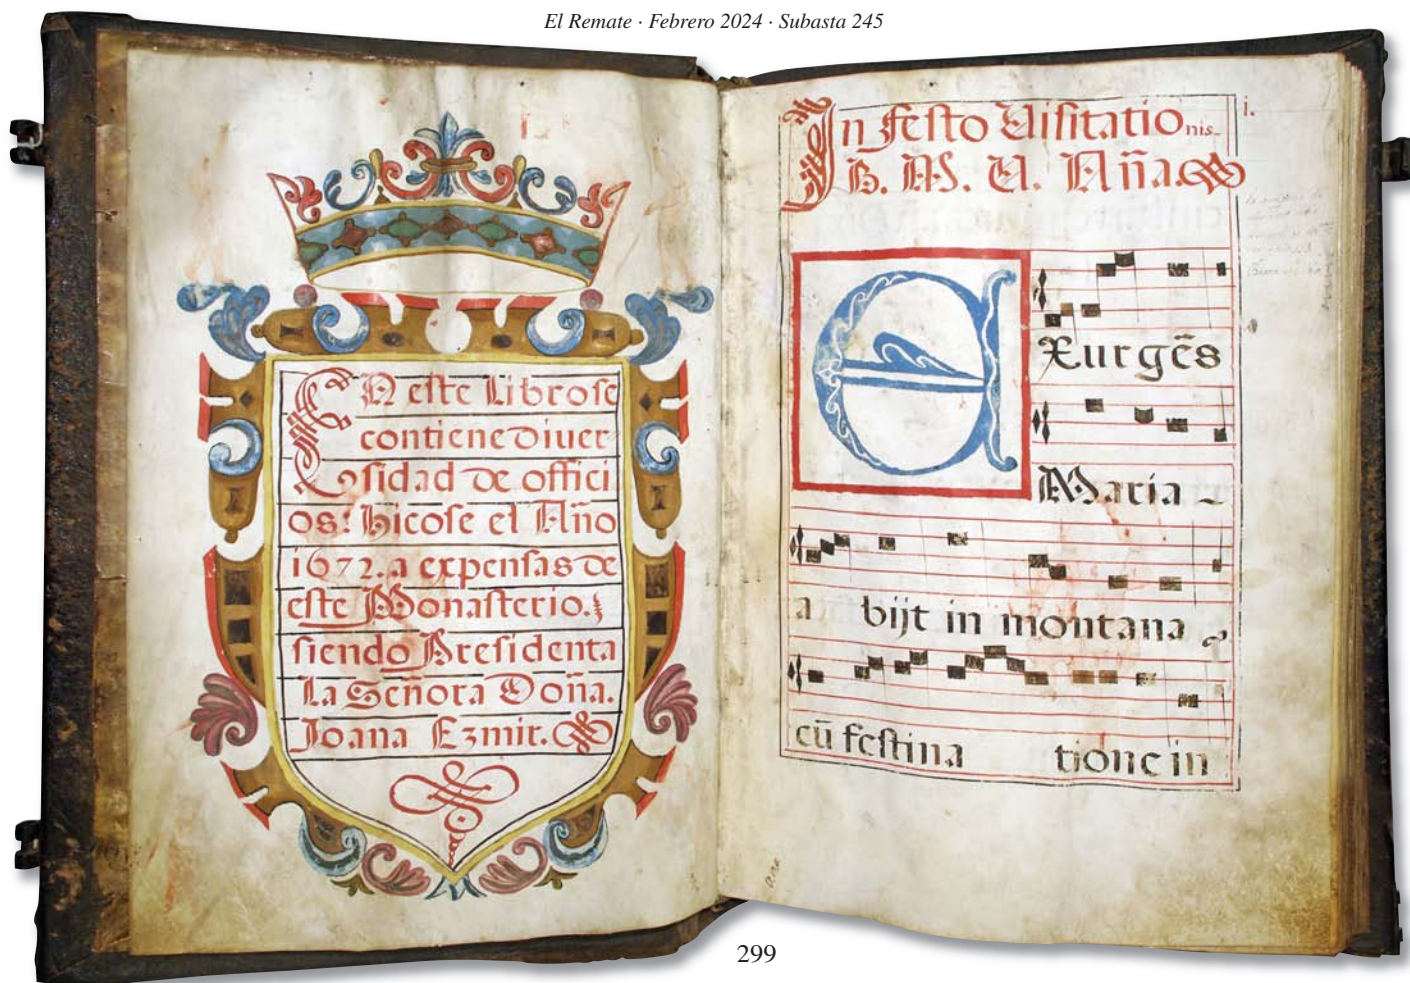 El Remate · Febrero 2024 · Subasta 245
EN este Libro se
contiene diuer
sidad de offici
os: Hicose el Año
1672. a expensas de
este Monasterio.
siendo Presidenta
la Señora Doña.
Joana Ezmir.
i.
In festo Uisitatio nis
B. M. V. Aña.
EXurgēs
Maria
a bijt in montana
cū festina tione in
299